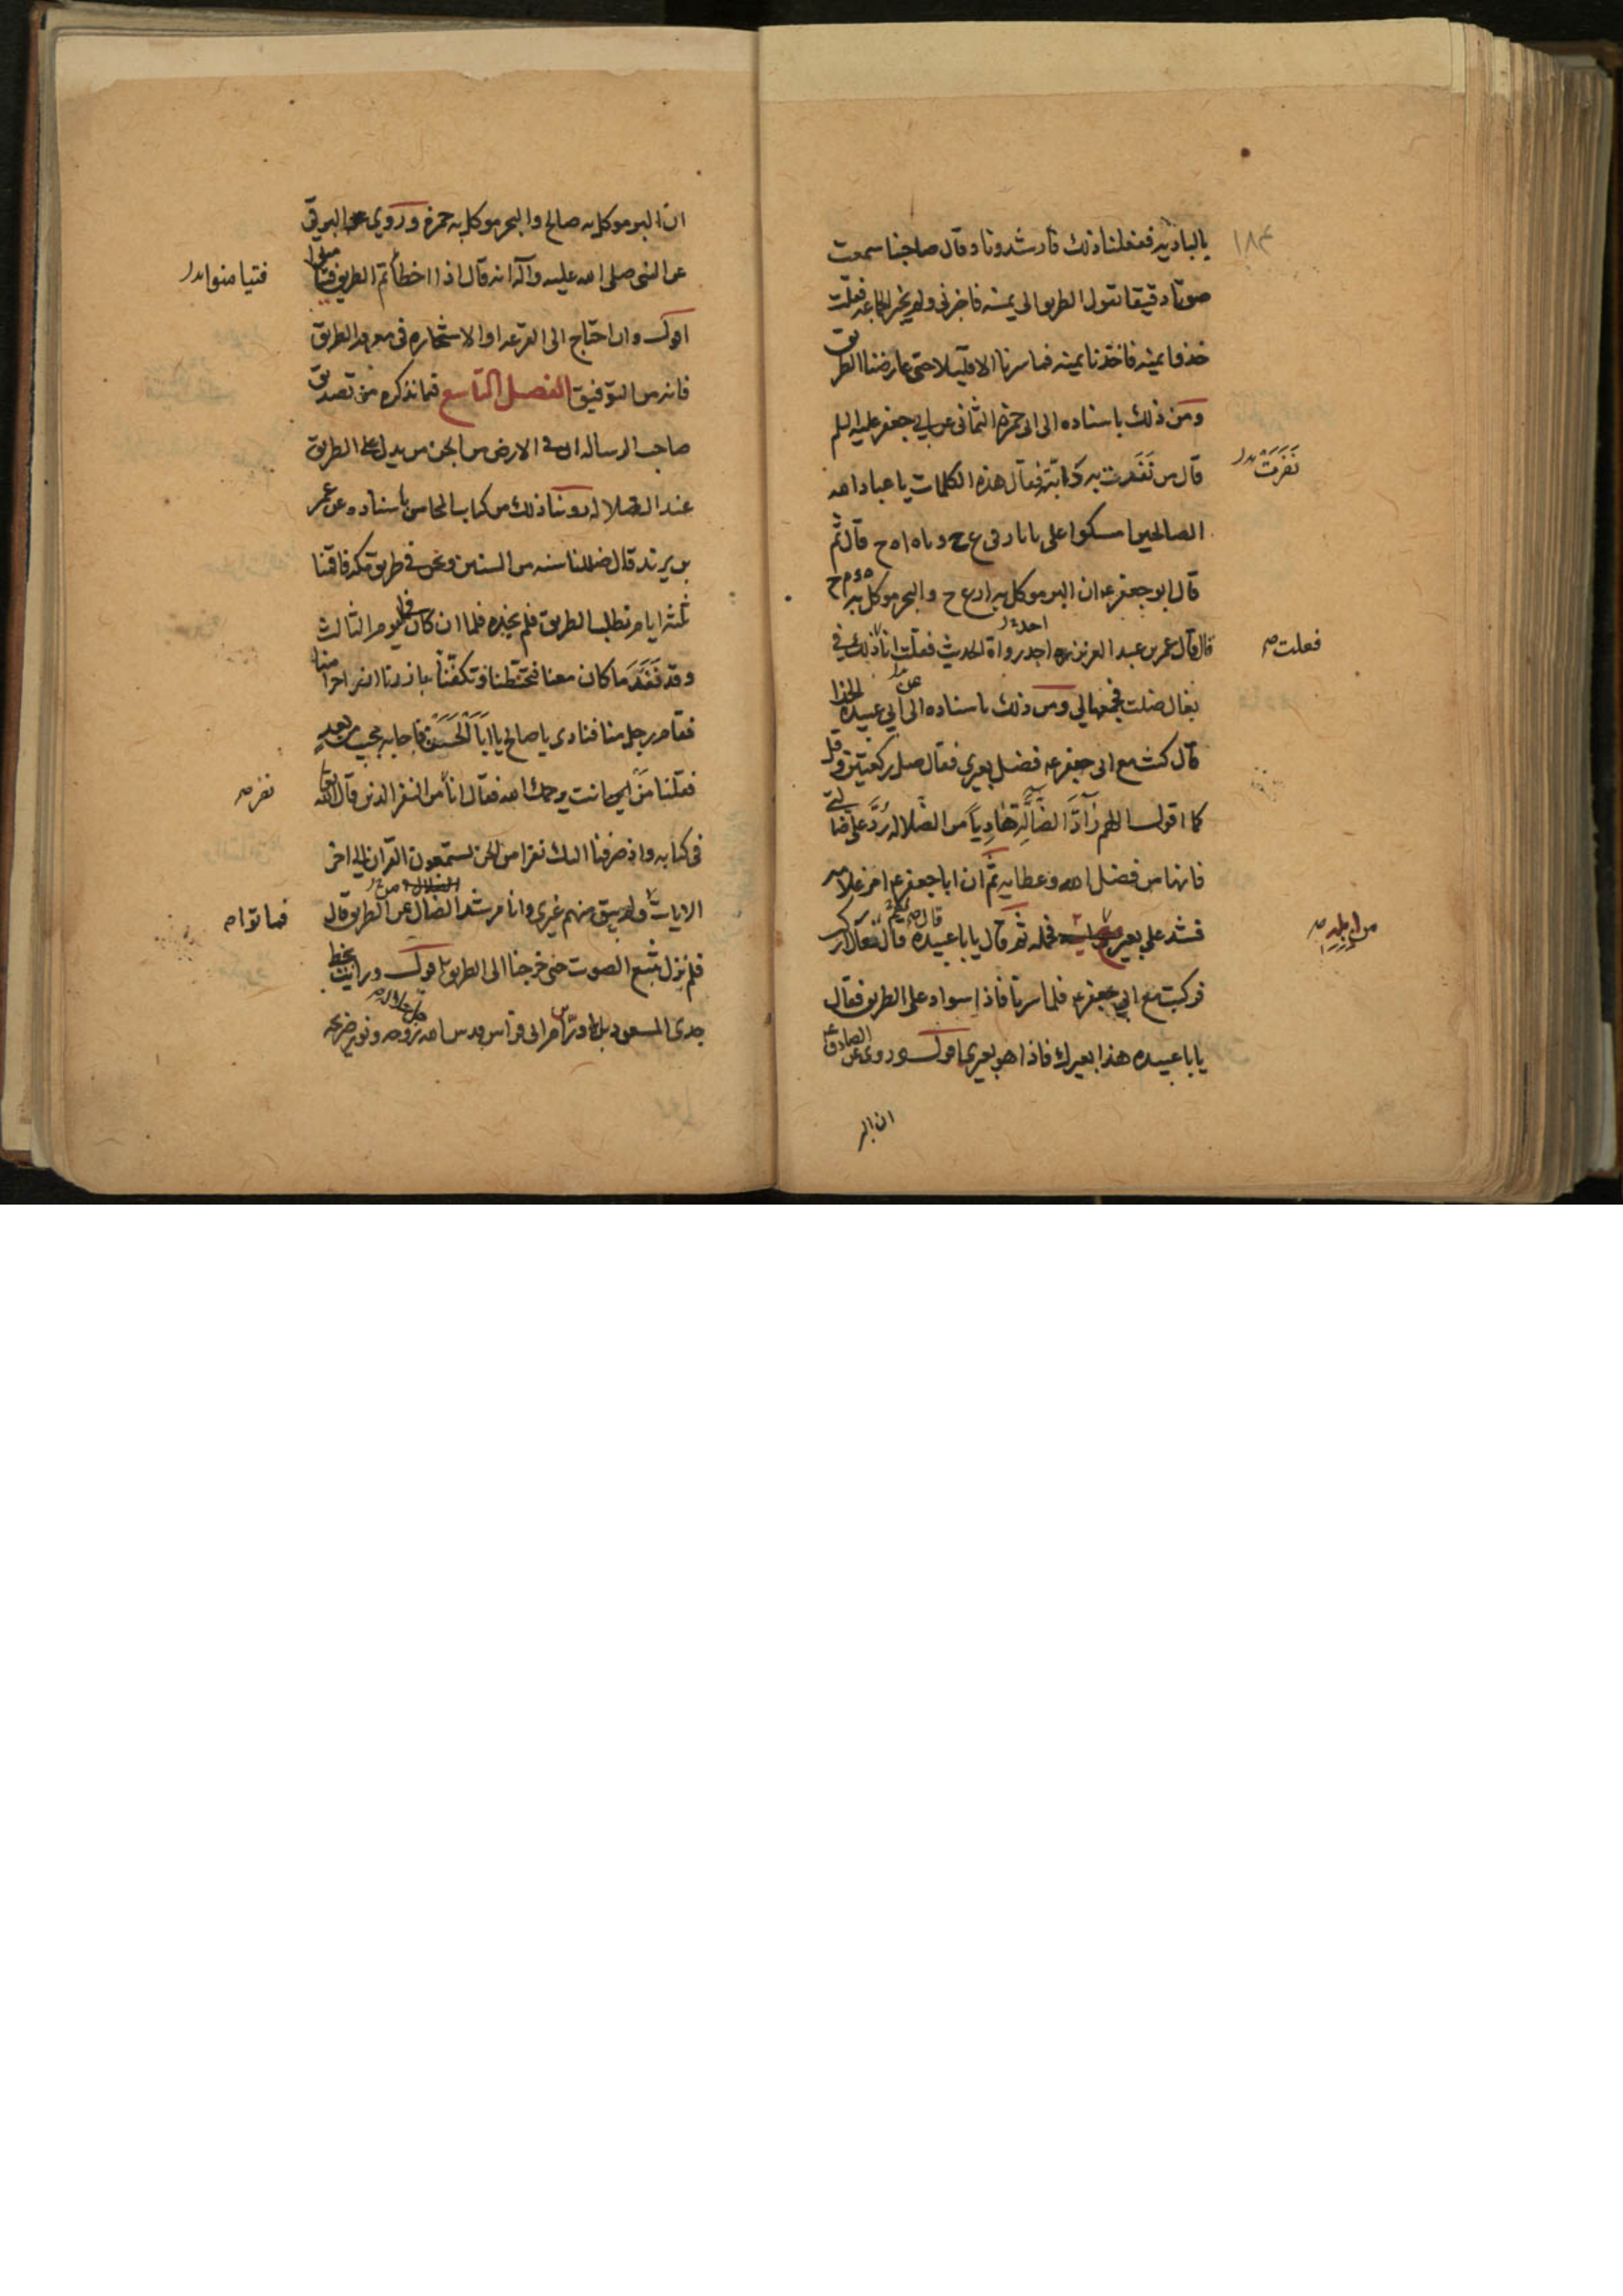 ١٨٤
بالبادية ففعلنا ذلك فارشدونا وقال صاحبنا سمعت
صوتا دقيقا يقول الطريق الى يمنه فاخبرني ولم يخبر الجماعة فقلت
خذوا يمنه فاخذنا يمنه فما سرنا الا قليلا حتى عارضنا الطريق
ومن ذلك باسناده الى ابى حمزة الثمالى عن ابي جعفر عليه السلم
قال من نفرت به دابته فقال هذه الكلمات يا عباد الله
نَفَرَتْ
الصالحين امسكوا على
قال ثم
قال ابو جعفر ع ان البر موكل به
والبحر موكل به
قال قال عمر بن عبد العزيز
رواة الحديث فقلت انا ذلك في
فعلت
بغال ضلت فجمعها لي ومن ذلك باسناده الى ابي عبيدة الحذا
قال كنت مع ابى جعفر ع فضل بعيري فقال صل ركعتين وقل
كما اقول اللهم رادّ الضالّة هادياً من الضلاله رُدَّ على ضالتي
فانها من فضل الله وعطايه ثم ان ابا جعفر ع امر غلامه
فشد على بعير
فحمله ثم قال يا با عبيده تعال اركب
من ابله
فركبت مع ابي جعفر ع فلما سرنا فاذا سواد على الطريق فقال
يا با عبيده هذا بعيرك فاذا هو بعيري اقول وروى عن الصادق ع
ان البر
ان البر موكل به صالح والبحر موكل به حمزة وروي عن البرقي
عن النبي صلى الله عليه وآله انه قال اذا اخطأتم الطريق فتيامنوا
فتيامنوا
اقول وان احتاج الى القرعه او الاستخاره في معرفه الطريق
فانه من التوفيق الفصل التاسع فيما نذكره من تصديق
صاحب الرساله ان في الارض من الجن من يدل على الطريق
عند الضلاله روينا ذلك من كتاب المحاسن باسناده عن عمر
بن يزيد قال ضللنا سنه من السنين ونحن في طريق مكه فاقمنا
ثلثه ايام نطلب الطريق فلم نجده فلما ان كان في اليوم الثالث
وقد نفد ما كان معنا
من الماء
فقام رجل منا فنادى يا صالح يا ابا الحسن فاجابه مجيب من بعد
فقلنا
انت يرحمك الله فقال انا من النفر الذين قال الله
نفر
في كتابه واذ صرفنا اليك نفرا من الجن يستمعون القرآن الى اخر
الايات ولم يبق منهم غيرى وانا مرشد الضال عن الطريق قال
فلم نزل نتبع الصوت حتى خرجنا الى الطريق اقول ورايت بخط
جدى المسعود ورّام بن ابى فراس قدس الله روحه ونور ضريحه